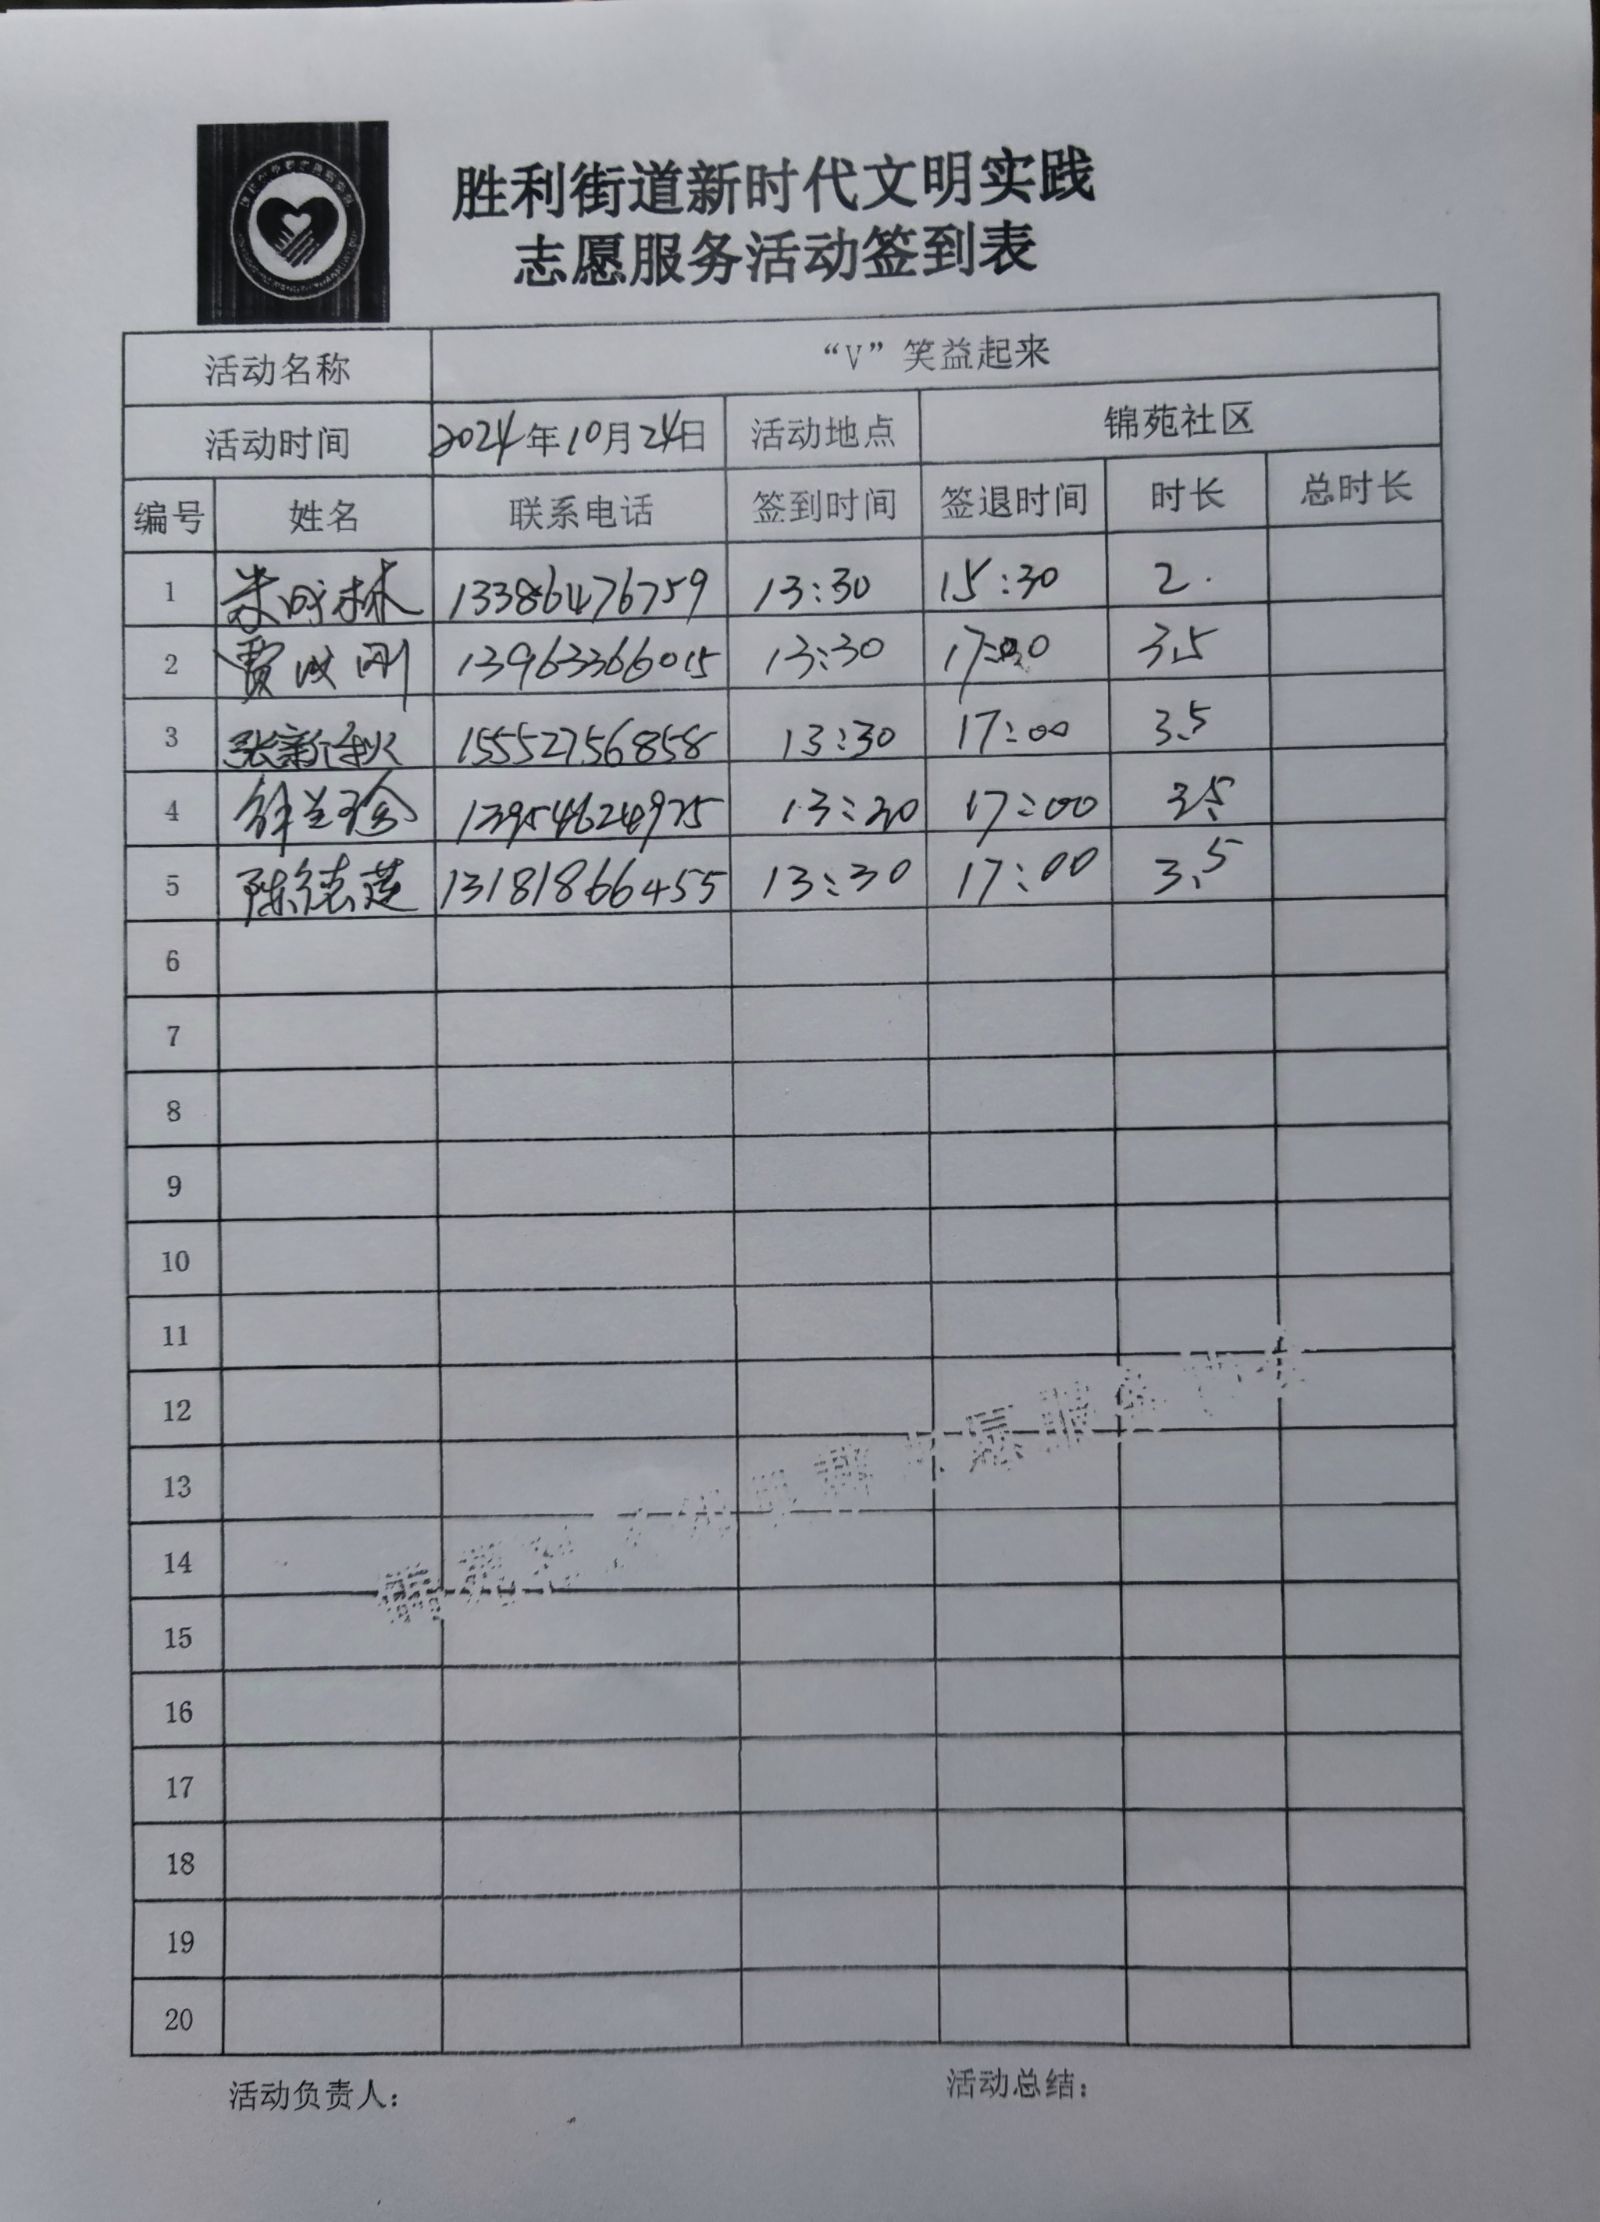 胜利街道新时代文明实践
志愿服务活动签到表
活动名称 “V”笑益起来
活动时间 2024年10月24日 活动地点 锦苑社区
编号 姓名 联系电话 签到时间 签退时间 时长 总时长
1 13386476759 13:30 15:30 2.
2 贾 刚 13963366015 13:30 17:00 3.5
3 张新秋 15552756858 13:30 17:00 3.5
4 徐兰珍 13954624975 13:30 17:00 3.5
5 陈德莲 13181866455 13:30 17:00 3.5
6
7
8
9
10
11
12
13
14
15
16
17
18
19
20
活动负责人： 活动总结：